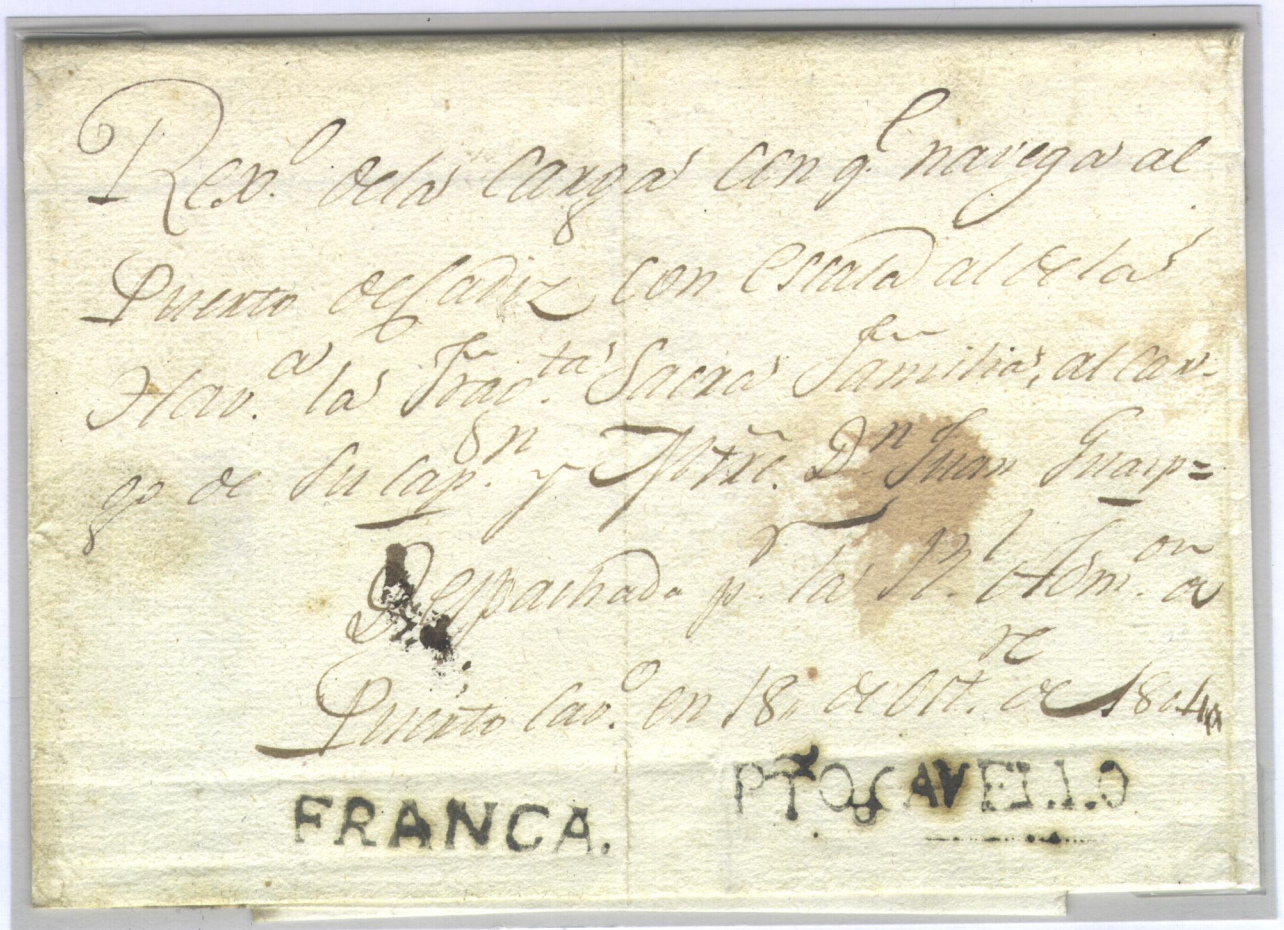 Rexº. dela Carga con qᵉ. navega al
Puerto de Cadiz con escala al de la
Havᵃ. la Fragᵗᵃ. Sacra Familia, al car-
go de su capⁿ. y Mtrē. Dⁿ Juan Guarp=
Despachada pʳ. la Rˡ. Admᵒⁿ. de
Puerto Cavº. en 18,, de Octʳᵉ. de 1804
FRANCA. PTº CAVELLO